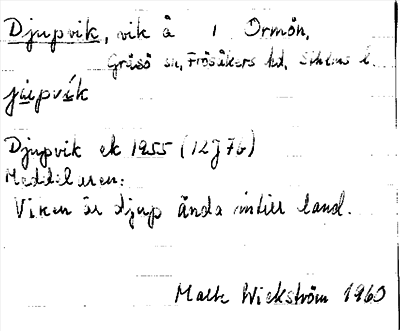 Djupvik, vik å 1 Ormön,
Gräsö sn, Frösåkers hd, Sthlms l.
júpvík
Djupvik ek 1955 (12J7b)
Meddelaren:
Viken är djup ända intill land.
Mats Wickström 1960